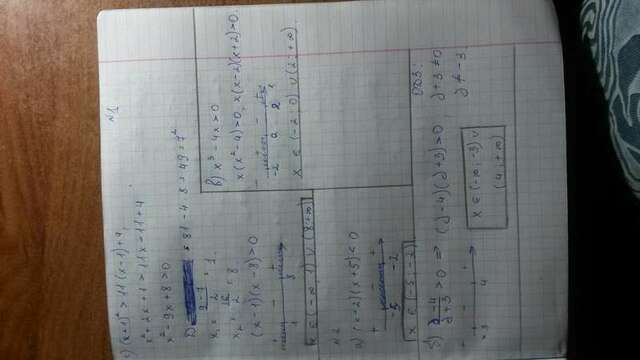 N1
(x+1)² > 11(x-1)+4
x²+2x+1 > 11x-11+4
x²-9x+8>0
= 81-4·8=49=7²
x₁ = (9-7)/2 = 1
x₂ = 16/2 = 8
(x-1)(x-8)>0
+ - +
1 8
x ∈ (-∞; 1) ∪ (8; +∞)
в) x³-4x>0
x(x²-4)>0, x(x-2)(x+2)>0
- + - +
-2 0 2
x ∈ (-2; 0) ∪ (2; +∞)
N2
а) (x-2)(x+5)<0
+ - +
x ∈ (-5; -2)
б) (y-4)/(y+3) >0 ⇒ (y-4)(y+3)>0
ОДЗ:
y+3≠0
y≠-3
+ - +
4
x ∈ (-∞; -3) ∪
(4; +∞)